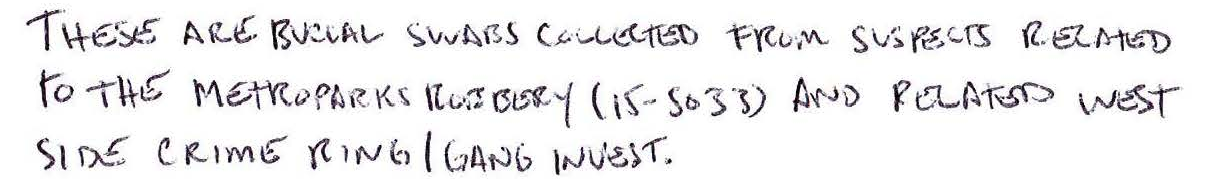 THESE ARE BUCCAL SWABS COLLECTED FROM SUSPECTS RELATED
TO THE METROPARKS ROBBERY (15-5033) AND RELATED WEST
SIDE CRIME RING/GANG INVEST.